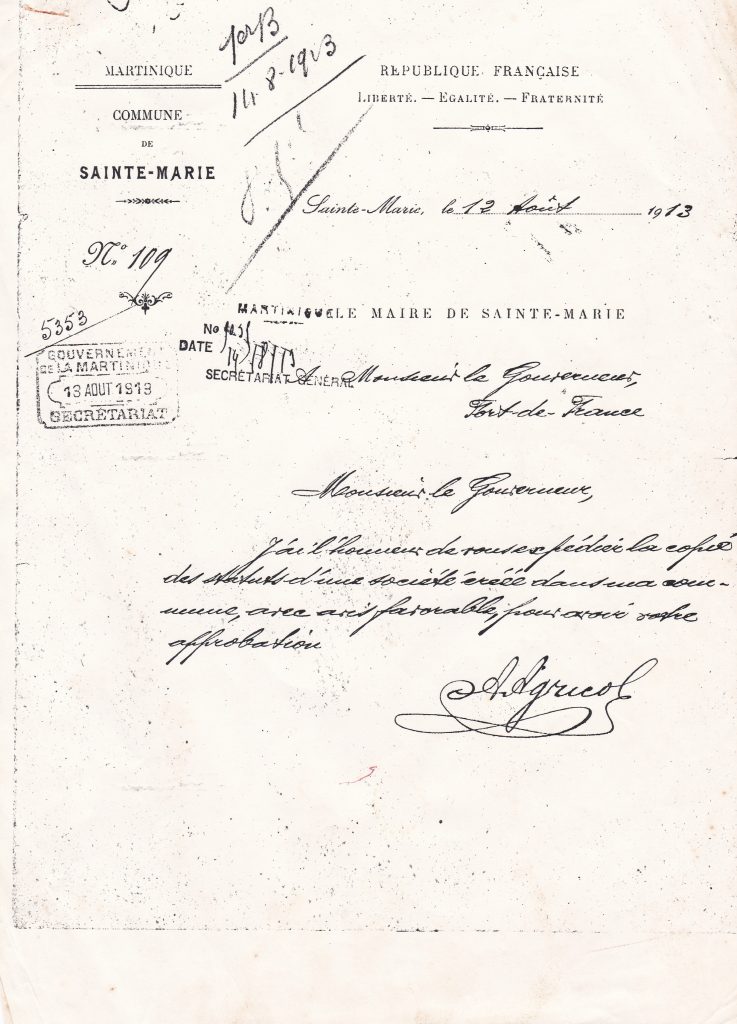 1er B
14-8-1913
MARTINIQUE
COMMUNE
DE
SAINTE-MARIE
N° 109
REPUBLIQUE FRANÇAISE
LIBERTÉ. — EGALITÉ. — FRATERNITÉ
Sainte-Marie, le 12 Août 1913
5353
GOUVERNEMENT
DE LA MARTINIQUE
13 AOUT 1913
SECRÉTARIAT
MARTINIQUE
No
DATE 14/8/13
SECRÉTARIAT GÉNÉRAL
LE MAIRE DE SAINTE-MARIE
A Monsieur le Gouverneur,
Fort-de-France
Monsieur le Gouverneur,
J'ai l'honneur de vous expédier la copie
des statuts d'une société créée dans ma com-
mune, avec avis favorable, pour avoir votre
approbation
A Agricol